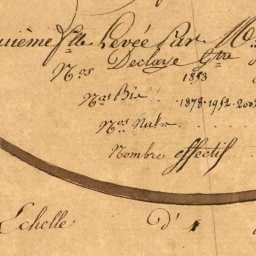 uième flle Levée Par M
Nos Declaye
1853
Nos Bis. 1878.1952.200
Nos Nuls
Nombre effectif
Echelle D' 1